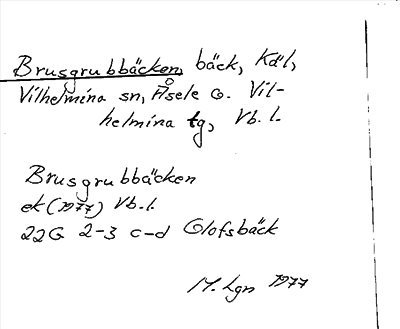 Brusgrubbäcken, bäck, Käl,
Vilhelmina sn, Åsele o. Vil-
helmina tg, Vb. l.
Brusgrubbäcken
ek (1977) Vb. l.
22G 2-3 c-d Olofsbäck
M. Lgn 1977